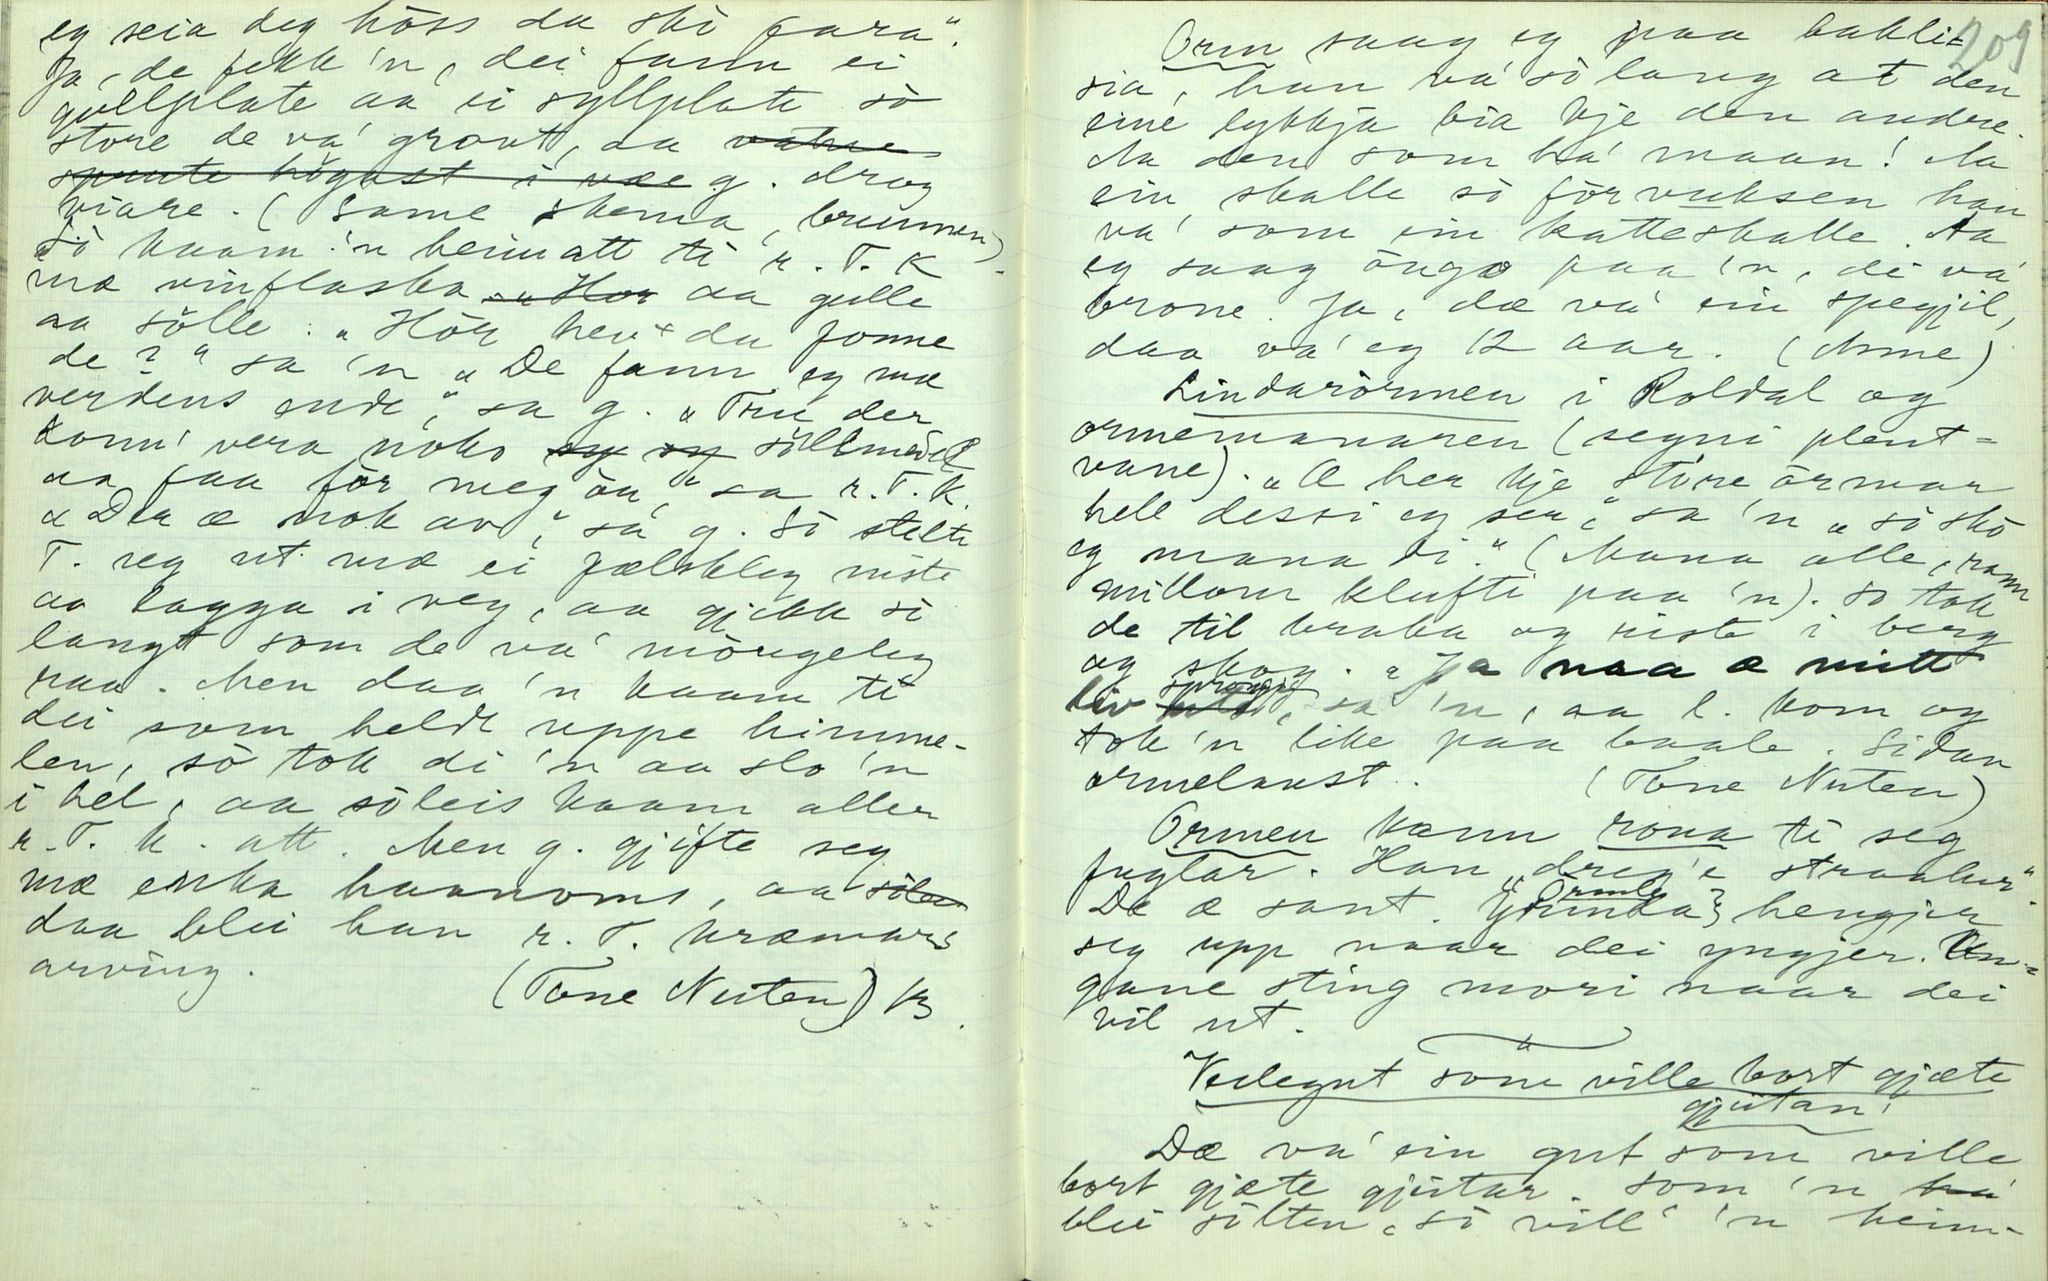 eg seia deg höss du ski fara".
Ja, de fekk 'n, dei fann ei
gullplate aa ei syllplate so
store de va' grovt, aa vatne
sprute högast i væ g. drog
viare. (Same skema, brunnen).
So kaam 'n heimatt te r. T. K
mæ vinflaska aa gulle
aa sölle. "Hör hev du fonne
de?" sa 'n "De fann eg mæ
verdens ende", sa g. "Tru der
konn' vera noko söllmedel
aa faa för meg öu," sa r. T. K.
"Der æ nok av", sa g. So stelte
T. seg ut mæ ei fælsleg niste
aa lagga i veg, aa gjekk so
langt som de va' möugeleg
raa. Men daa 'n kaam te
dei som heldt uppe himme-
len, so tok di 'n aa slo 'n
i hel, aa soleis kaam aller
r. T. K. att. Men g. gjifte seg
mæ enka haanoms, aa
daa blei han r. T. Kræmars
arving.
(Tone Nuten) /3.
209
Orm saag eg paa bakli-
sia, han va' so lang at den
eine lykkja bia kje den andre.
Aa den som ha' maan! Aa
ein skalle so förvuksen han
va' som ein katteskalle. Aa
eg saag öugo paa 'n, di va'
brone. Ja, dæ va' ein spegjil,
daa va' eg 12 aar. (Anne)
Lindarormen i Roldal og
ormemanaren (segni plent-
vane). "Æ her kje större örmar
hell dessi eg ser", sa 'n "so sko
eg mana di." (Mana alle, rann
millom klufti paa 'n). So tok
de til braka og riste i berg
og skog. "Ja naa æ mitt
liv sprongje", sa 'n, aa l. kom og
tok 'n like paa baale. Sidan
ormelaust. (Tone Nuten)
Ormen kann rona te seg
fuglar. Han "dreg'e straaker".
De æ sant. "Örmly hengjer
seg upp naar dei yngjer. Un-
gane sting mori naar dei
vil ut.
Vedegut som ville bort gjæte
gjeitan'
Dæ va' ein gut som ville
bort gjæte gjeitar. Som 'n ha'
blei solten, so vill' 'n heim-